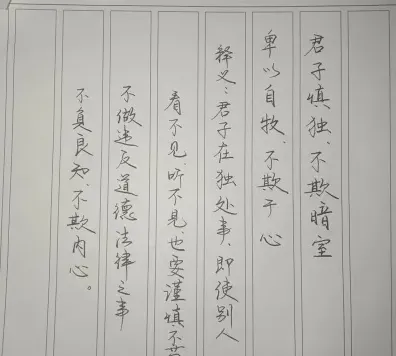 君子慎独、不欺暗室
卑以自牧、不欺于心
释义：君子在独处事、即使别人
看不见、听不见、也要谨慎、不
不做违反道德法律之事
不负良知、不欺内心。